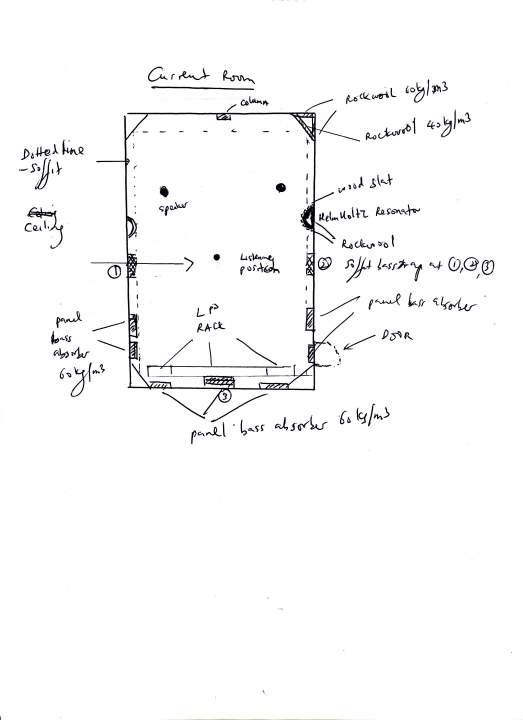 Current Room
column
Rockwool 60kg/m3
Rockwool 40kg/m3
Dotted line
- Soffit
Ceiling
wood slat
Speaker
HelmHoltz Resonator
Rockwool
Listening
position
① 
② Soffit basstrap at ①, ②, ③
panel bass absorber
panel
bass
absorber
60kg/m3
LP
RACK
DOOR
③
panel bass absorber 60kg/m3